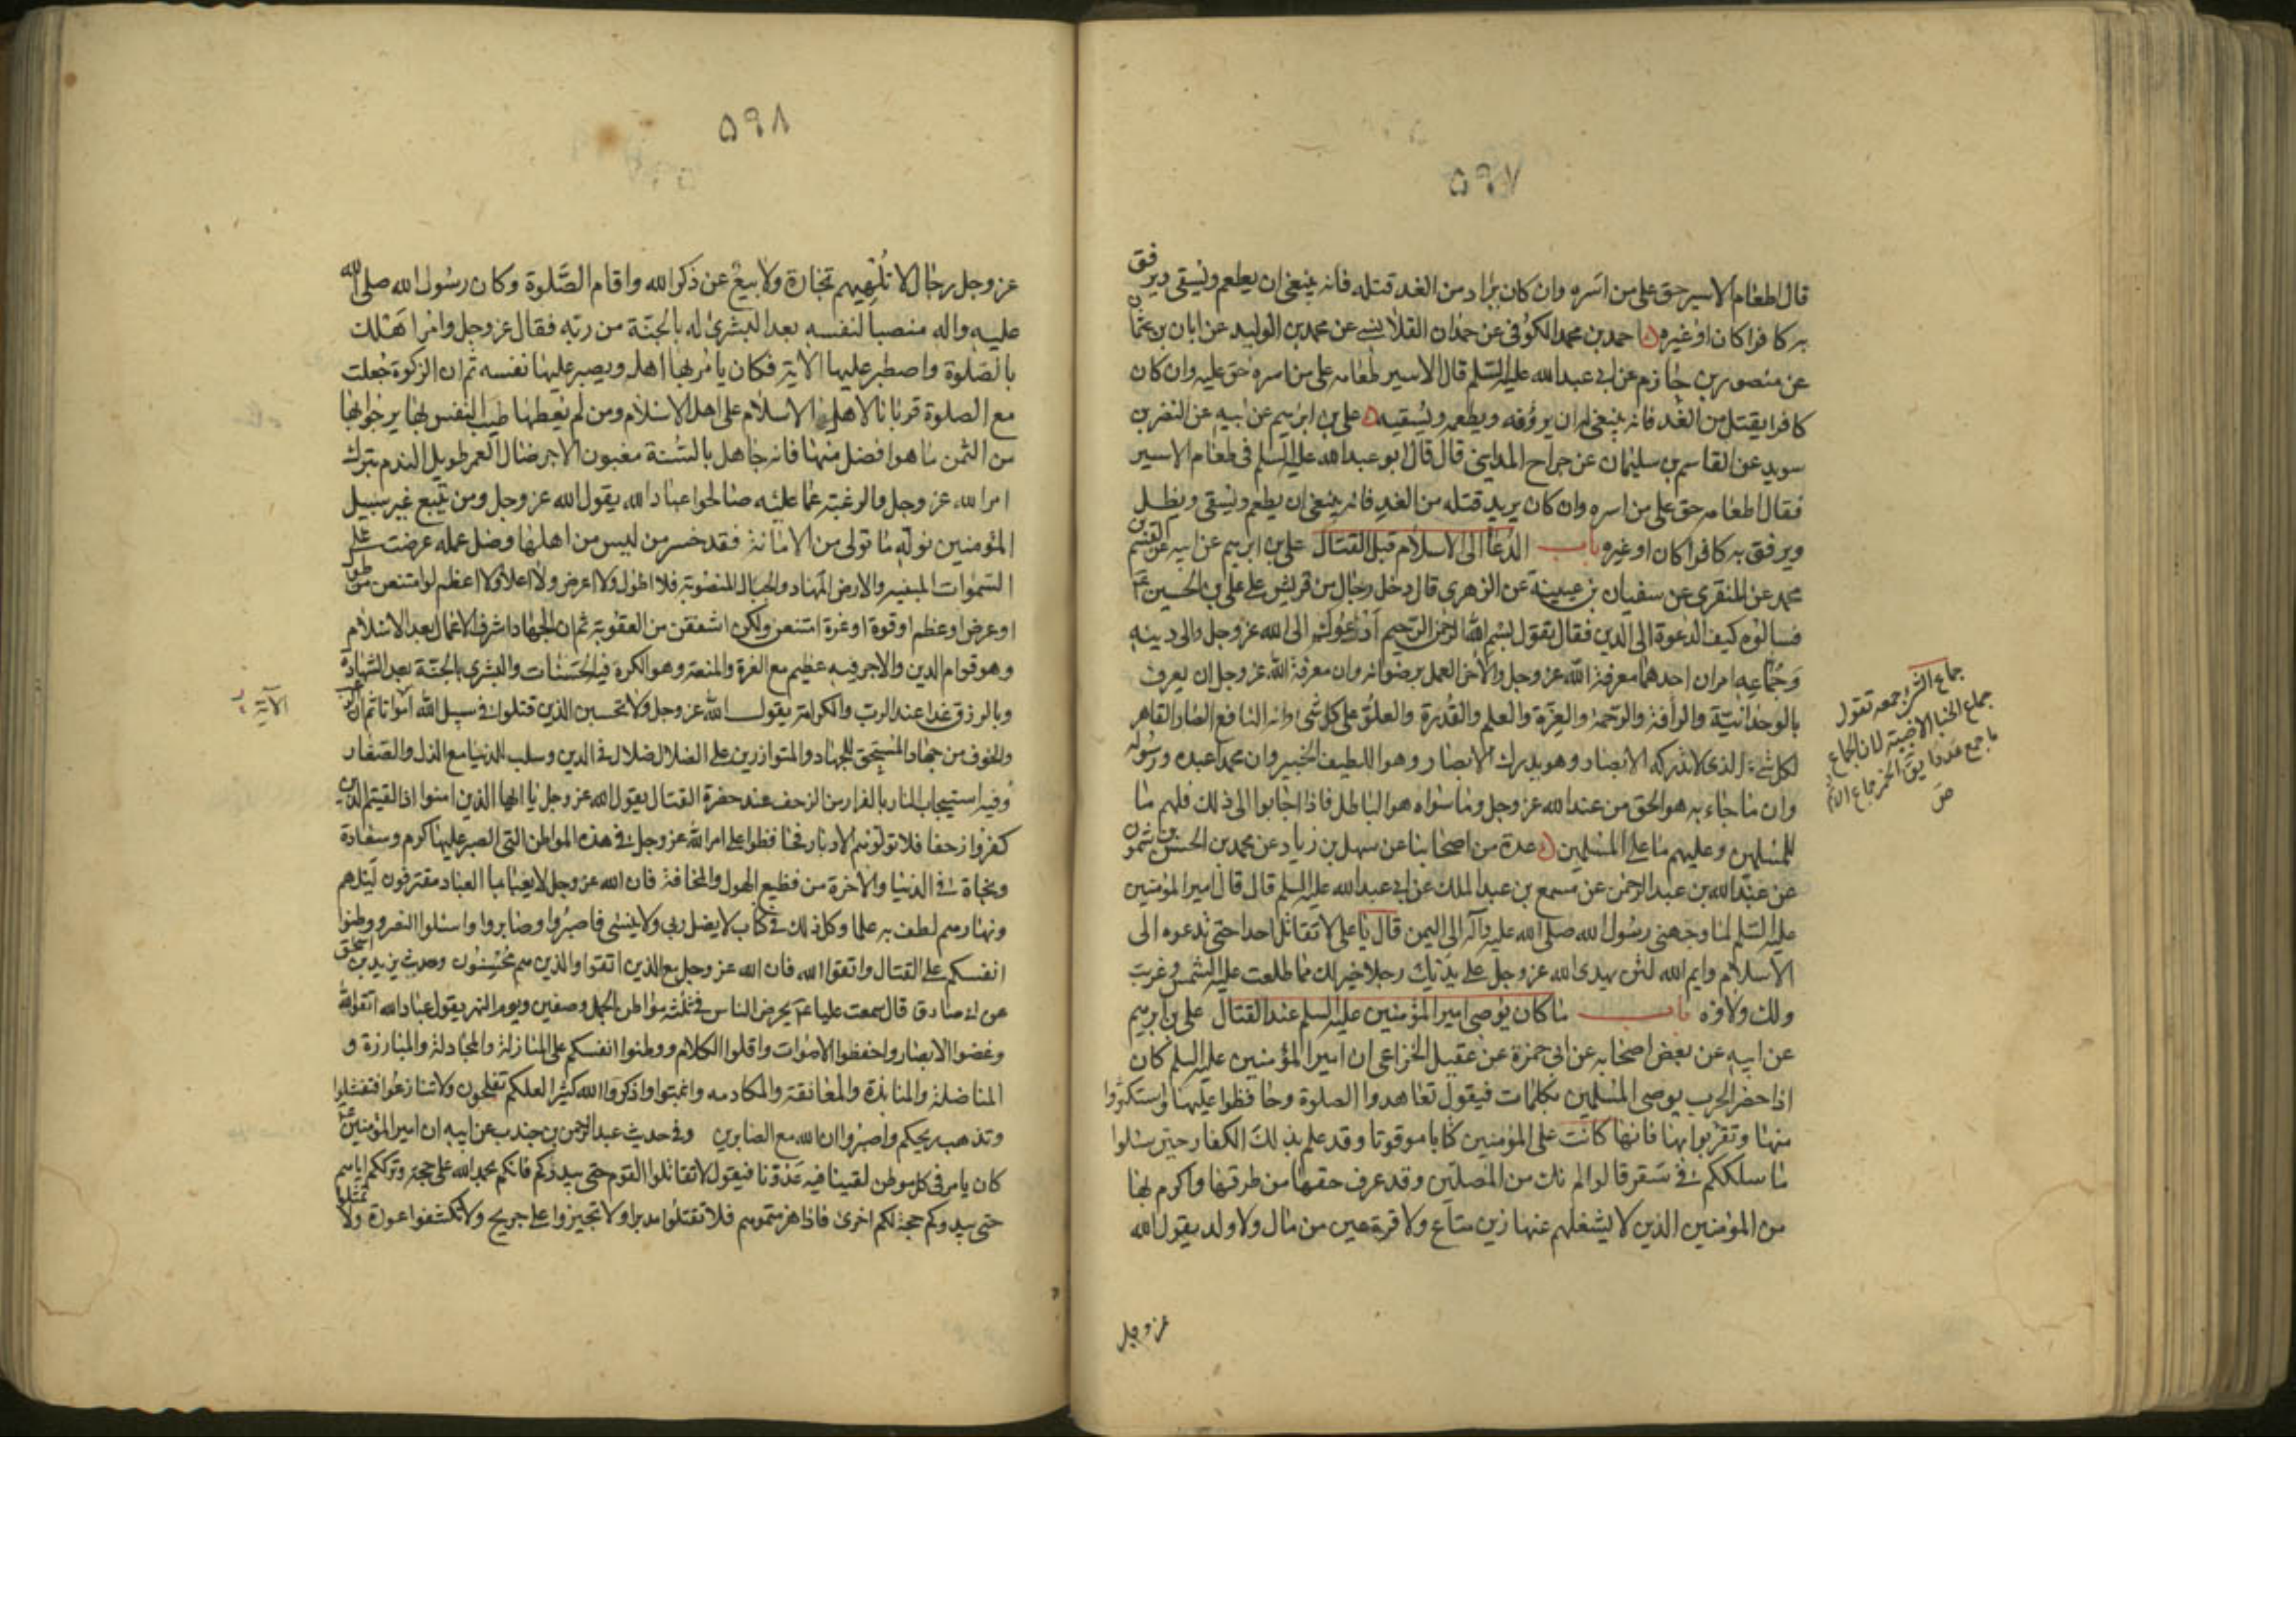 ۵۹۷
قال اطعام الاسير حق على من اسره وان كان يراد من الغد قتله فانه ينبغي ان يطعم ويسقى ويرفق
به كافرا كان او غيره احمد بن محمد الكوفى عن حمدان القلانسى عن محمد بن الوليد عن ابان بن عثمان
عن منصور بن حازم عن ابى عبد الله عليه السلم قال الاسير طعامه على من اسره حق عليه وان كان
كافرا يقتل من الغد فانه ينبغي له ان يروفه ويطعمه ويسقيه على بن ابرهيم عن ابيه عن النضر بن
سويد عن القاسم بن سليمان عن جراح المداينى قال قال ابو عبد الله عليه السلم فى طعام الاسير
فقال اطعامه حق على من اسره وان كان يريد قتله من الغد فانه ينبغي ان يطعم ويسقى ويظل
ويرفق به كافرا كان او غيره باب الدعا الى الاسلام قبل القتال على بن ابرهيم عن ابيه عن القسم بن
محمد عن المنقرى عن سفيان بن عيينة عن الزهرى قال دخل رجال من قريش على على بن الحسين ع
فسالوه كيف الدعوة الى الدين فقال يقول بسم الله الرحمن الرحيم ادعوك الى الله عز وجل والى دينه
وجماعه امران احدهما معرفة الله عز وجل والاخر العمل برضوانه وان معرفة الله عز وجل ان يعرف
بالوحدانية والرافة والرحمة والعزة والعلم والقدرة والعلو على كل شئ وانه النافع الضار القاهر
لكل شئ الذى لا تدركه الابصار وهو يدرك الابصار وهو اللطيف الخبير وان محمدا عبده ورسوله
وان ما جاء به هو الحق من عند الله عز وجل وما سواه هو الباطل فاذا اجابوا الى ذلك فلهم ما
للمسلمين وعليهم ما على المسلمين عدة من اصحابنا عن سهل بن زياد عن محمد بن الحسن بن شمون
عن عبد الله بن عبد الرحمن عن مسمع بن عبد الملك عن ابى عبد الله عليه السلم قال قال امير المؤمنين
عليه السلم لما وجهنى رسول الله صلى الله عليه وآله الى اليمن قال يا على لا تقاتل احدا حتى تدعوه الى
الاسلام وايم الله لئن يهدى الله عز وجل على يديك رجلا خير لك مما طلعت عليه الشمس وغربت
ولك ولاؤه باب ما كان يوصى امير المؤمنين عليه السلم عند القتال على بن ابرهيم
عن ابيه عن بعض اصحابه عن ابى حمزة عن عقيل الخزاعى ان امير المؤمنين عليه السلم كان
اذا حضر الحرب يوصى المسلمين بكلمات فيقول تعاهدوا الصلوة وحافظوا عليها واستكثروا
منها وتقربوا بها فانها كانت على المؤمنين كتابا موقوتا وقد علم بذلك الكفار حين سئلوا
ما سلككم فى سقر قالوا لم نك من المصلين وقد عرف حقها من طرقها واكرم بها
من المؤمنين الذين لا يشغلهم عنها زين متاع ولا قرة عين من مال ولا ولد يقول الله
عز وجل
جماع الشئ جمعه تقول
جماع الخبا الاخبية لان الجماع
ما جمع عددا يق الخمر جماع الاثم
ص
۵۹۸
عز وجل رجال لا تلهيهم تجارة ولا بيع عن ذكر الله واقام الصلوة وكان رسول الله صلى الله
عليه واله منصبا لنفسه بعد البشرى له بالجنة من ربه فقال عز وجل وامر اهلك
بالصلوة واصطبر عليها الاية فكان يامر بها اهله ويصبر عليها نفسه ثم ان الزكوة جعلت
مع الصلوة قربانا لاهل الاسلام على اهل الاسلام ومن لم يعطها طيب النفس بها يرجو بها
من الثمن ما هو افضل منها فانه جاهل بالسنة مغبون الاجر ضال العمر طويل الندم بترك
امر الله عز وجل والرغبة عما عليه صالحوا عباد الله يقول الله عز وجل ومن يتبع غير سبيل
المؤمنين نوله ما تولى من الامانة فقد خسر من ليس من اهلها وضل عمله عرضت على
السموات المبنية والارض المهاد والجبال المنصوبة فلا اطول ولا اعرض ولا اعلا ولا اعظم لو امتنعن من طول
او عرض او عظم او قوة او عزة امتنعن ولكن اشفقن من العقوبة ثم ان الجهاد اشرف الاعمال بعد الاسلام
وهو قوام الدين والاجر فيه عظيم مع العزة والمنعة وهو الكرة فيه الحسنات والبشرى بالجنة بعد الشهادة
وبالرزق غدا عند الرب والكرامة يقول الله عز وجل ولا تحسبن الذين قتلوا فى سبيل الله امواتا ثم ان الرعب
الآية
والخوف من جهاد المستحق للجهاد والمتوازرين على الضلال ضلال فى الدين وسلب للدنيا مع الذل والصغار
وفيه استيجاب النار بالفرار من الزحف عند حضرة القتال يقول الله عز وجل يا ايها الذين امنوا اذا لقيتم الذين
كفروا زحفا فلا تولوهم الادبار فحافظوا على امر الله عز وجل فى هذه المواطن التى الصبر عليها كرم وسعادة
ونجاة فى الدنيا والاخرة من فظيع الهول والمخافة فان الله عز وجل لا يعبا بما العباد مقترفون ليلهم
ونهارهم لطف به علما وكل ذلك فى كتاب لا يضل ربى ولا ينسى فاصبروا وصابروا واسئلوا النصر ووطنوا
انفسكم على القتال واتقوا الله فان الله عز وجل مع الذين اتقوا والذين هم محسنون وحديث يزيد بن اسحق
عن ابى صادق قال سمعت عليا ع يحرض الناس فى ثلثة مواطن الجمل وصفين ويوم النهر يقول عباد الله اتقوا الله
وغضوا الابصار واخفظوا الاصوات واقلوا الكلام ووطنوا انفسكم على المنازلة والمجادلة والمبارزة و
المناضلة والمنابذة والمعانقة والمكادمه واثبتوا واذكروا الله كثيرا لعلكم تفلحون ولا تنازعوا فتفشلوا
وتذهب ريحكم واصبروا ان الله مع الصابرين وفى حديث عبد الرحمن بن جندب عن ابيه ان امير المؤمنين ع
كان يامر فى كل موطن لقينا فيه عدونا فيقول لا تقاتلوا القوم حتى يبدؤكم فانكم بحمد الله على حجة وترككم اياهم
حتى يبدوكم حجة لكم اخرى فاذا هزمتموهم فلا تقتلوا مدبرا ولا تجيزوا على جريح ولا تكشفوا عورة ولا تمثلوا